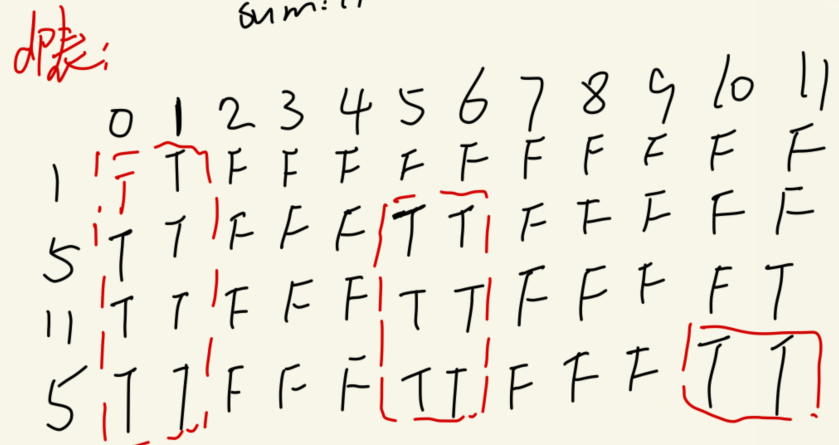 sum:11
dp表:
0 1 2 3 4 5 6 7 8 9 10 11
1 F T F F F F F F F F F F
5 T T F F F T T F F F F F
11 T T F F F T T F F F F T
5 T T F F F T T F F F T T